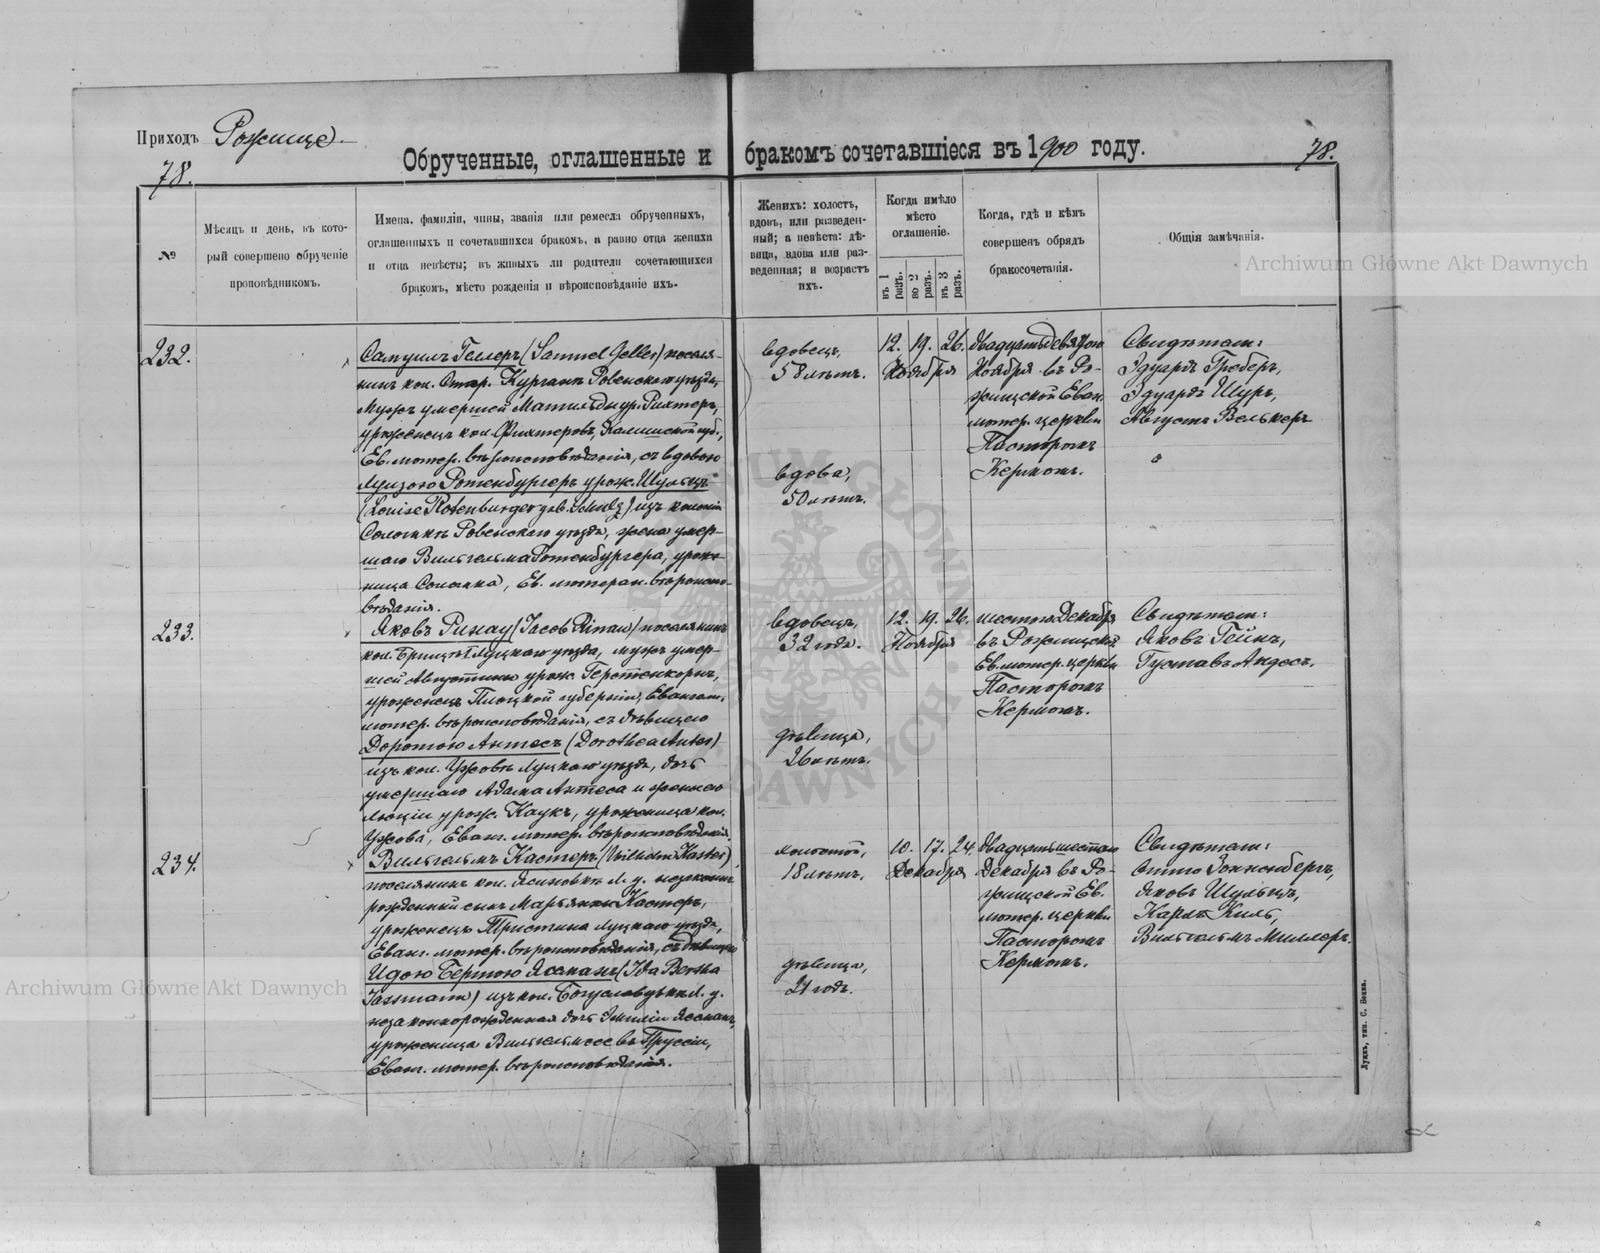 Приходъ Рожище
78.
Обрученные, оглашенные и бракомъ сочетавшіеся въ 1900 году.
78.
№
Мѣсяцъ и день, въ кото-
рый совершено обрученіе
проповѣдникомъ.
Имена, фамиліи, чины, званія или ремесла обрученныхъ,
оглашенныхъ и сочетавшихся бракомъ, а равно отца жениха
и отца невѣсты; въ живыхъ ли родители сочетающихся
бракомъ, мѣсто рожденія и вѣроисповѣданіе ихъ.
Женихъ: холостъ,
вдовъ, или разведен-
ный; а невѣста: дѣ-
вица, вдова или раз-
веденная; и возрастъ
ихъ.
Когда имѣло
мѣсто
оглашеніе.
въ 1 разъ.
во 2 разъ.
въ 3 разъ.
Когда, гдѣ и кѣмъ
совершенъ обрядъ
бракосочетанія.
Общія замѣчанія.
Archiwum Główne Akt Dawnych
232.
Самуилъ Геллеръ (Samuel Geller) поселя-
нинъ кол. Стар. Курганъ Ровенскаго уѣзда,
мужъ умершей Матильды ур. Рихтеръ,
уроженецъ кол. Калишской губ.,
Ев. лютер. вѣроисповѣданія, съ вдовою
Луизою Ротенбургеръ урож. Шульцъ
(Louise Rotenburger geb. Schulz) изъ колоніи
Ровенскаго уѣзда, жена умер-
шаго Вильгельма Ротенбургера, уроже-
ница Ев. лютеран. вѣроиспо-
вѣданія.
вдовецъ,
58 лѣтъ.
вдова,
50 лѣтъ.
12. 19. 26.
Ноября
двадцать девятого
Ноября въ Ро-
жищской Еван.
лютер. церкви
Пасторомъ
Кермомъ.
Свидѣтели:
Эдуардъ Греберъ,
Эдуардъ Шуръ,
Августъ Велькеръ
233.
Яковъ Ринау (Jacob Rinau) поселянинъ
кол. Луцкаго уѣзда, мужъ умер-
шей Августины урож. Герстенкорнъ,
уроженецъ Плоцкой губерніи, Евангел.
лютер. вѣроисповѣданія, съ дѣвицею
Доротею Антесъ (Dorothea Antes)
изъ кол. Ужовъ Луцкаго уѣзда, дочь
умершаго Адама Антеса и жены его
Люціи урож. Каукъ, уроженица кол.
Ужова, Еванг. лютер. вѣроисповѣданія.
вдовецъ,
32 года.
дѣвица,
26 лѣтъ.
12. 19. 26.
Ноября
шестого Декабря
въ Рожищской
Ев. лютер. церкви
Пасторомъ
Кермомъ.
Свидѣтели:
Яковъ Гейнъ,
Густавъ Андесъ.
234.
Вильгельмъ Кастеръ (Wilhelm Kaster)
поселянинъ кол. Ясиновки Л. у. незаконно-
рожденный сынъ Марьянны Кастеръ,
уроженецъ Тристина Луцкаго уѣзда,
Еванг. лютер. вѣроисповѣданія, съ дѣвицею
Идою Бертою Ясманъ (Ida Bertha
Jassmann) изъ кол. Богуславувки Л. у.
незаконнорожденная дочь Эмиліи Ясманъ,
уроженица въ Пруссіи,
Еванг. лютер. вѣроисповѣданія.
холостой,
18 лѣтъ.
дѣвица,
21 годъ.
10. 17. 24.
Декабря
двадцать шестого
Декабря въ Ро-
жищской Ев.
лютер. церкви
Пасторомъ
Кермомъ.
Свидѣтели:
Отто Зонненбергъ,
Яковъ Шульцъ,
Карлъ Киль,
Вильгельмъ Миллеръ.
Archiwum Główne Akt Dawnych
Луцкъ, тип. С. Бонка.